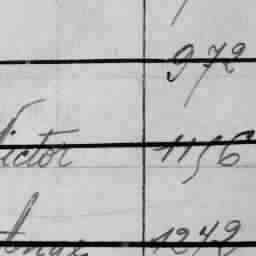 972
Victor 1156
1242